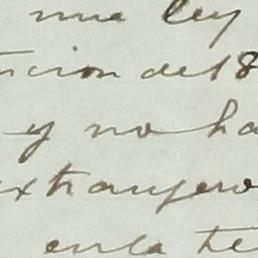 una ley
ncion del 8
y no ha
extranjero
en la te